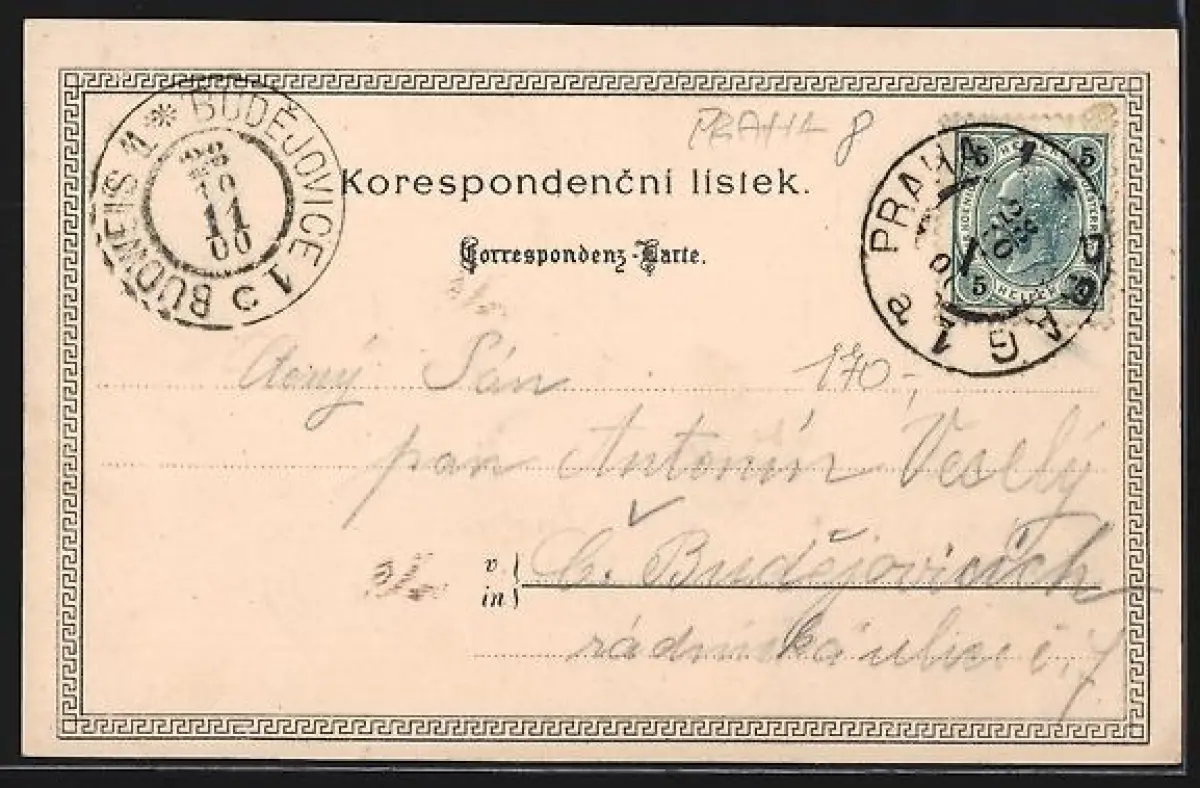 PRAHA 8
Korespondenční lístek.
Correspondenz-Karte.
BUDĚJOVICE 1
BUDWEIS 1 c
11
00
PRAHA 1 * PRAG 1 a
5 5
5 HELLER
170.-
Pán
pan Antonín Veselý
v
in
Č. Budějovicích
ulice č. 7